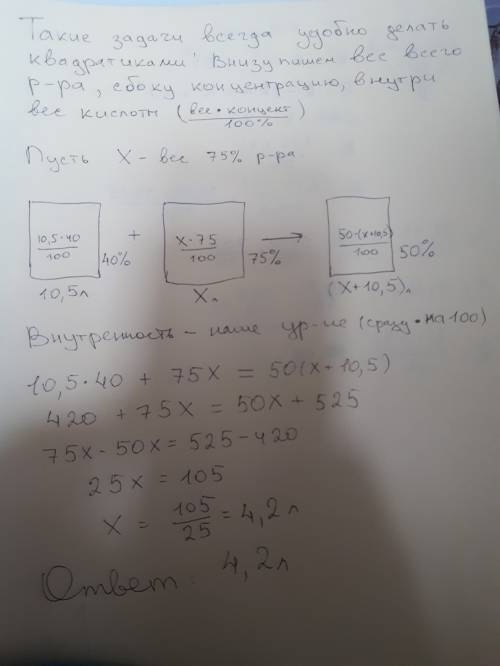 Такие задачи всегда удобно делать
квадратиками! Внизу пишем вес всего
р-ра, сбоку концентрацию, внутри
вес кислоты (вес·концент/100%)
Пусть X - вес 75% р-ра
10,5·40/100 40% + X·75/100 75% → 50·(x+10,5)/100 50%
10,5л Xл (X+10,5)л
Внутренность - наше ур-ие (сразу·на 100)
10,5·40 + 75X = 50(X+10,5)
420 + 75X = 50X + 525
75X - 50X = 525 - 420
25X = 105
X = 105/25 = 4,2 л
Ответ: 4,2л